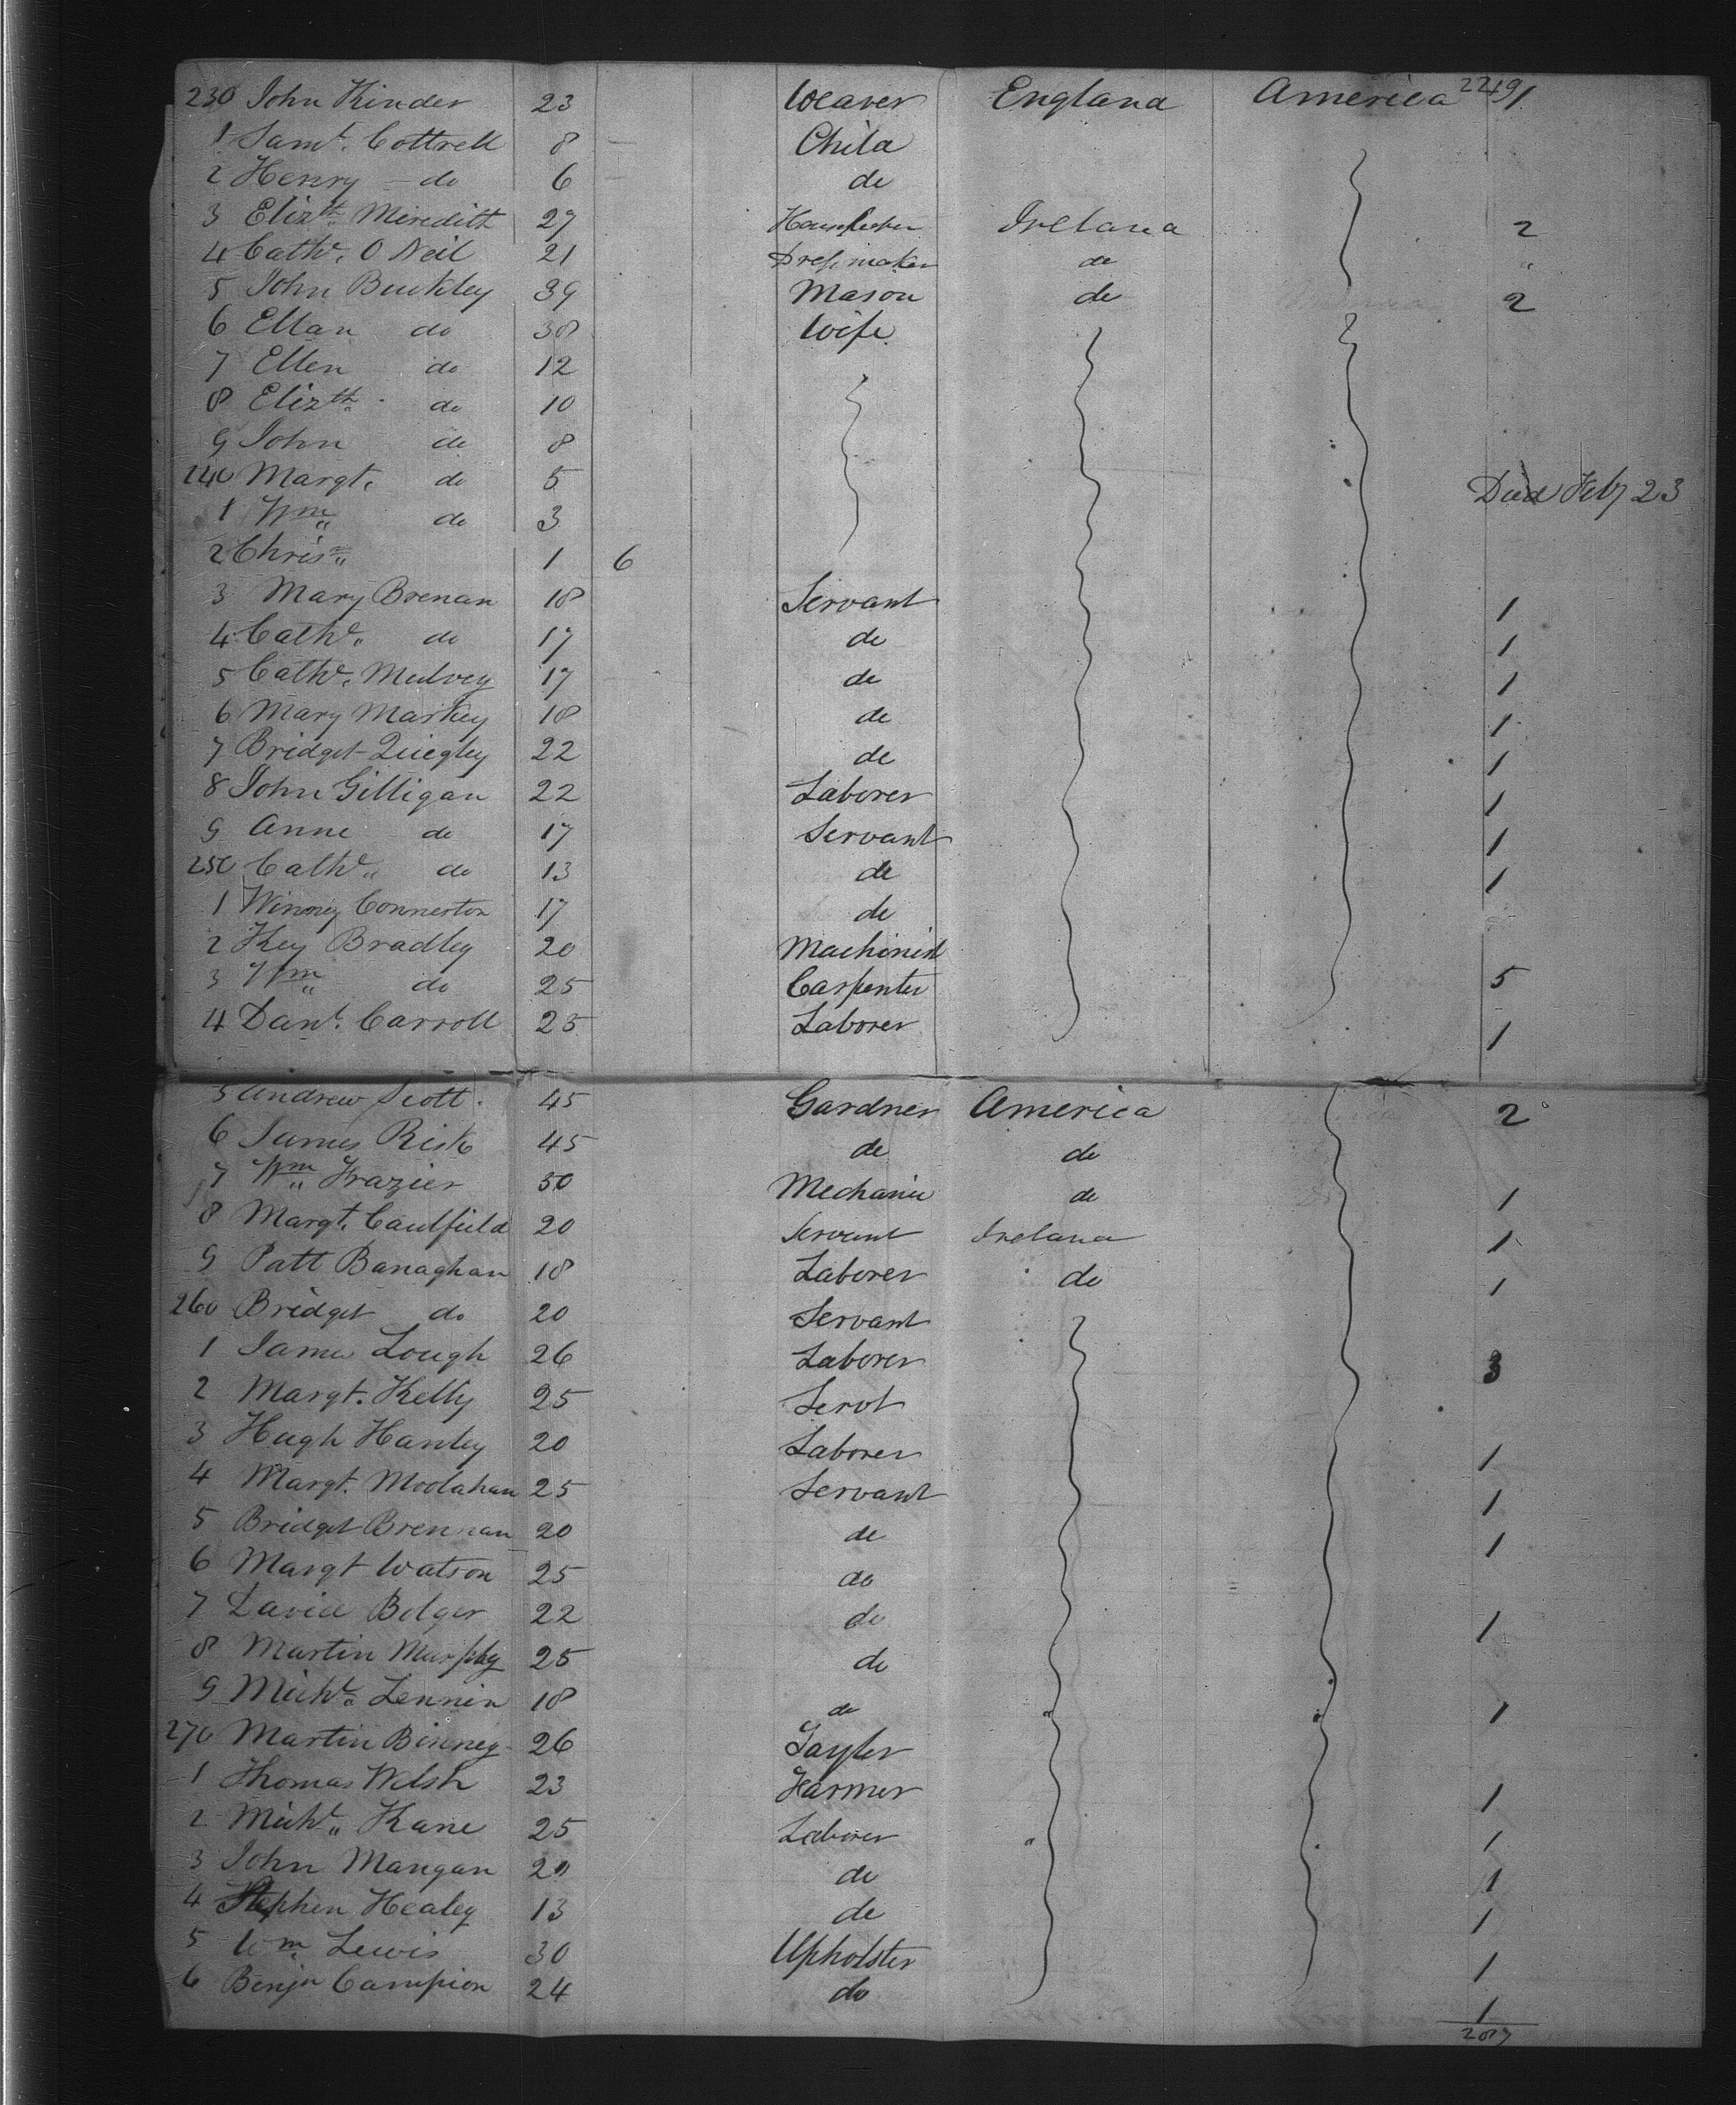 230 John Kinder 23 Weaver England America 2249 1
1 Saml. Cottrell 8 Child
2 Henry do 6 do
3 Elizth Meredith 27 Housekeeper Ireland 2
4 Cathe. O Neil 21 Dressmaker do "
5 John Buckley 39 Mason do 2
6 Ellan do 38 Wife
7 Ellen do 12
8 Elizth. do 10
9 John do 8
240 Margt. do 5 Died Feby 23
1 Wm do 3
2 Chris 1 6
3 Mary Brenan 18 Servant 1
4 Cathe do 17 do 1
5 Cathe. Mulvey 17 do 1
6 Mary Markey 18 do 1
7 Bridget Quigley 22 do 1
8 John Gilligan 22 Laborer 1
9 Anne do 17 Servant 1
250 Cathe do 13 do 1
1 Winney Connerton 17 do
2 Bradley 20 Machinist
3 Wm do 25 Carpenter 5
4 Danl. Carroll 25 Laborer 1
5 Andrew Scott. 45 Gardner America 2
6 James Risk 45 do do
7 Wm Frazier 50 Mechanic do 1
8 Margt. Caulfield 20 Servant Ireland 1
9 Patt Banaghan 18 Laborer do 1
260 Bridget do 20 Servant
1 James Lough 26 Laborer 3
2 Margt. Kelly 25 Servt
3 Hugh Hanley 20 Laborer 1
4 Margt. Moolahan 25 Servant 1
5 Bridget Brennan 20 do 1
6 Margt Watson 25 do
7 Bolger 22 do 1
8 Martin Murphy 25 do
9 Michl Lennin 18 do 1
270 Martin Binney 26 Taylor
1 Thomas Welsh 23 Farmer 1
2 Michl Kane 25 Laborer 1
3 John Mangan 20 do 1
4 Stephen Healey 13 do 1
5 Wm Lewis 30 Upholster 1
6 Benjn Campion 24 do 1